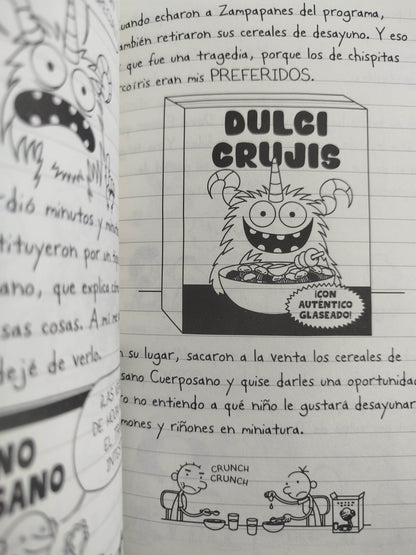 rdió minutos y
tituyeron por un
ano, que explica
sas cosas. A mí
dejé de verlo.
NO
SANO
uando echaron a Zampapanes del programa,
ambién retiraron sus cereales de desayuno. Y eso
que fue una tragedia, porque los de chispitas
rcoíris eran mis PREFERIDOS.
DULCI
CRUJIS
¡CON
AUTÉNTICO
GLASEADO!
n su lugar, sacaron a la venta los cereales de
sano Cuerposano y quise darles una oportunidad
ro no entiendo a qué niño le gustará desayunar
mones y riñones en miniatura.
CRUNCH
CRUNCH